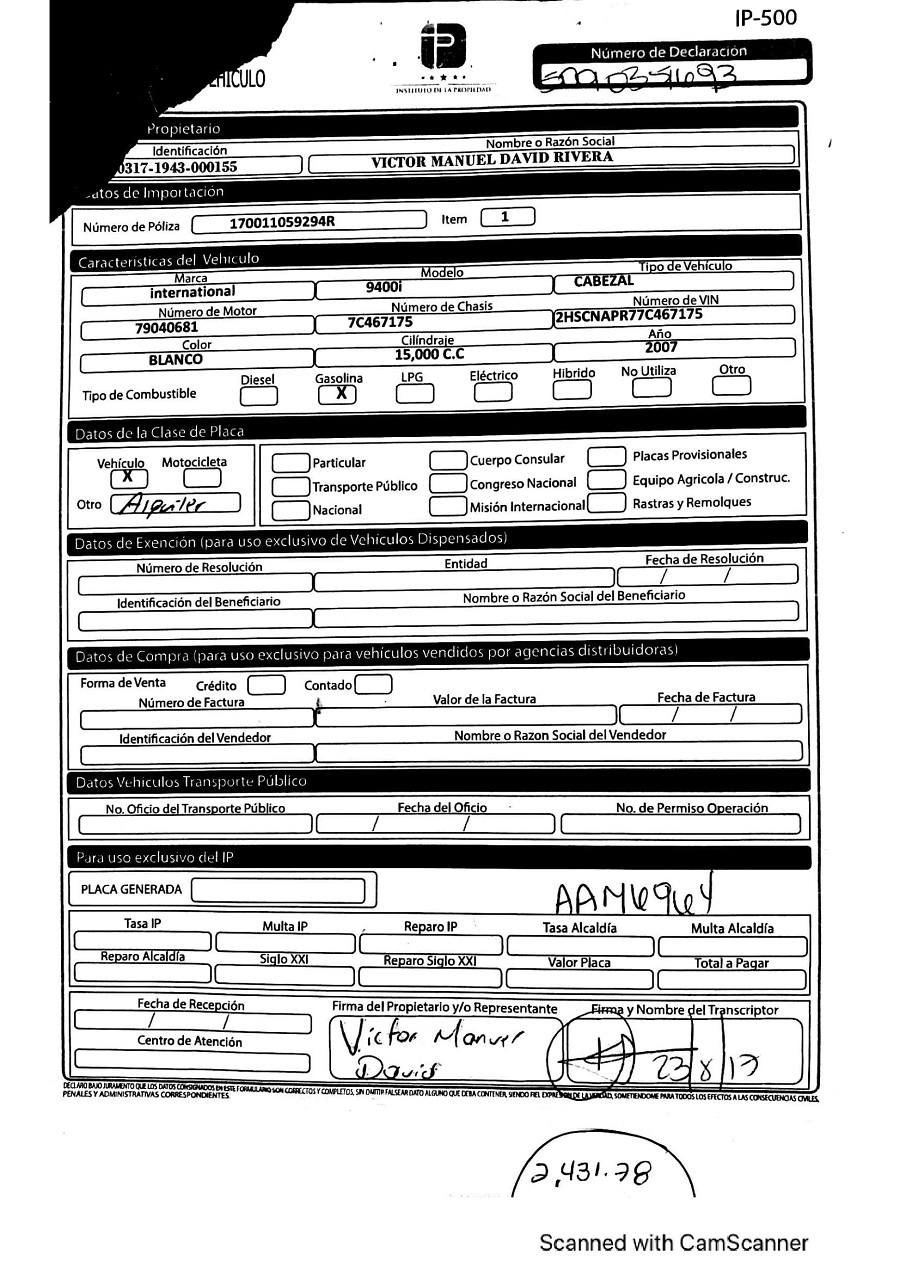 IP-500
iP
INSTITUTO DE LA PROPIEDAD
Número de Declaración
VEHICULO
Propietario
Identificación
Nombre o Razón Social
0317-1943-000155
VICTOR MANUEL DAVID RIVERA
Datos de Importación
Número de Póliza 170011059294R Item 1
Características del Vehículo
Marca Modelo Tipo de Vehículo
international 9400i CABEZAL
Número de Motor Número de Chasis Número de VIN
79040681 7C467175 2HSCNAPR77C467175
Color Cilíndraje Año
BLANCO 15,000 C.C 2007
Tipo de Combustible Diesel Gasolina X LPG Eléctrico Hibrido No Utiliza Otro
Datos de la Clase de Placa
Vehículo Motocicleta
X
Otro Alquiler
Particular Cuerpo Consular Placas Provisionales
Transporte Público Congreso Nacional Equipo Agricola / Construc.
Nacional Misión Internacional Rastras y Remolques
Datos de Exención (para uso exclusivo de Vehículos Dispensados)
Número de Resolución Entidad Fecha de Resolución
/ /
Identificación del Beneficiario Nombre o Razón Social del Beneficiario
Datos de Compra (para uso exclusivo para vehículos vendidos por agencias distribuidoras)
Forma de Venta Crédito Contado
Número de Factura Valor de la Factura Fecha de Factura
/ /
Identificación del Vendedor Nombre o Razon Social del Vendedor
Datos Vehiculos Transporte Público
No. Oficio del Transporte Público Fecha del Oficio No. de Permiso Operación
/ /
Para uso exclusivo del IP
PLACA GENERADA
AAM6964
Tasa IP Multa IP Reparo IP Tasa Alcaldía Multa Alcaldía
Reparo Alcaldía Siglo XXI Reparo Siglo XXI Valor Placa Total a Pagar
Fecha de Recepción Firma del Propietario y/o Representante Firma y Nombre del Transcriptor
/ /
Victor Manuel
David
23/8/17
Centro de Atención
DECLARO BAJO JURAMENTO QUE LOS DATOS CONSIGNADOS EN ESTE FORMULARIO SON CORRECTOS Y COMPLETOS, SIN OMITIR FALSEAR DATO ALGUNO QUE DEBA CONTENER, SIENDO FIEL EXPRESION DE LA VERDAD, SOMETIENDOME PARA TODOS LOS EFECTOS A LAS CONSECUENCIAS CIVILES,
PENALES Y ADMINISTRATIVAS CORRESPONDIENTES.
2,431.78
Scanned with CamScanner